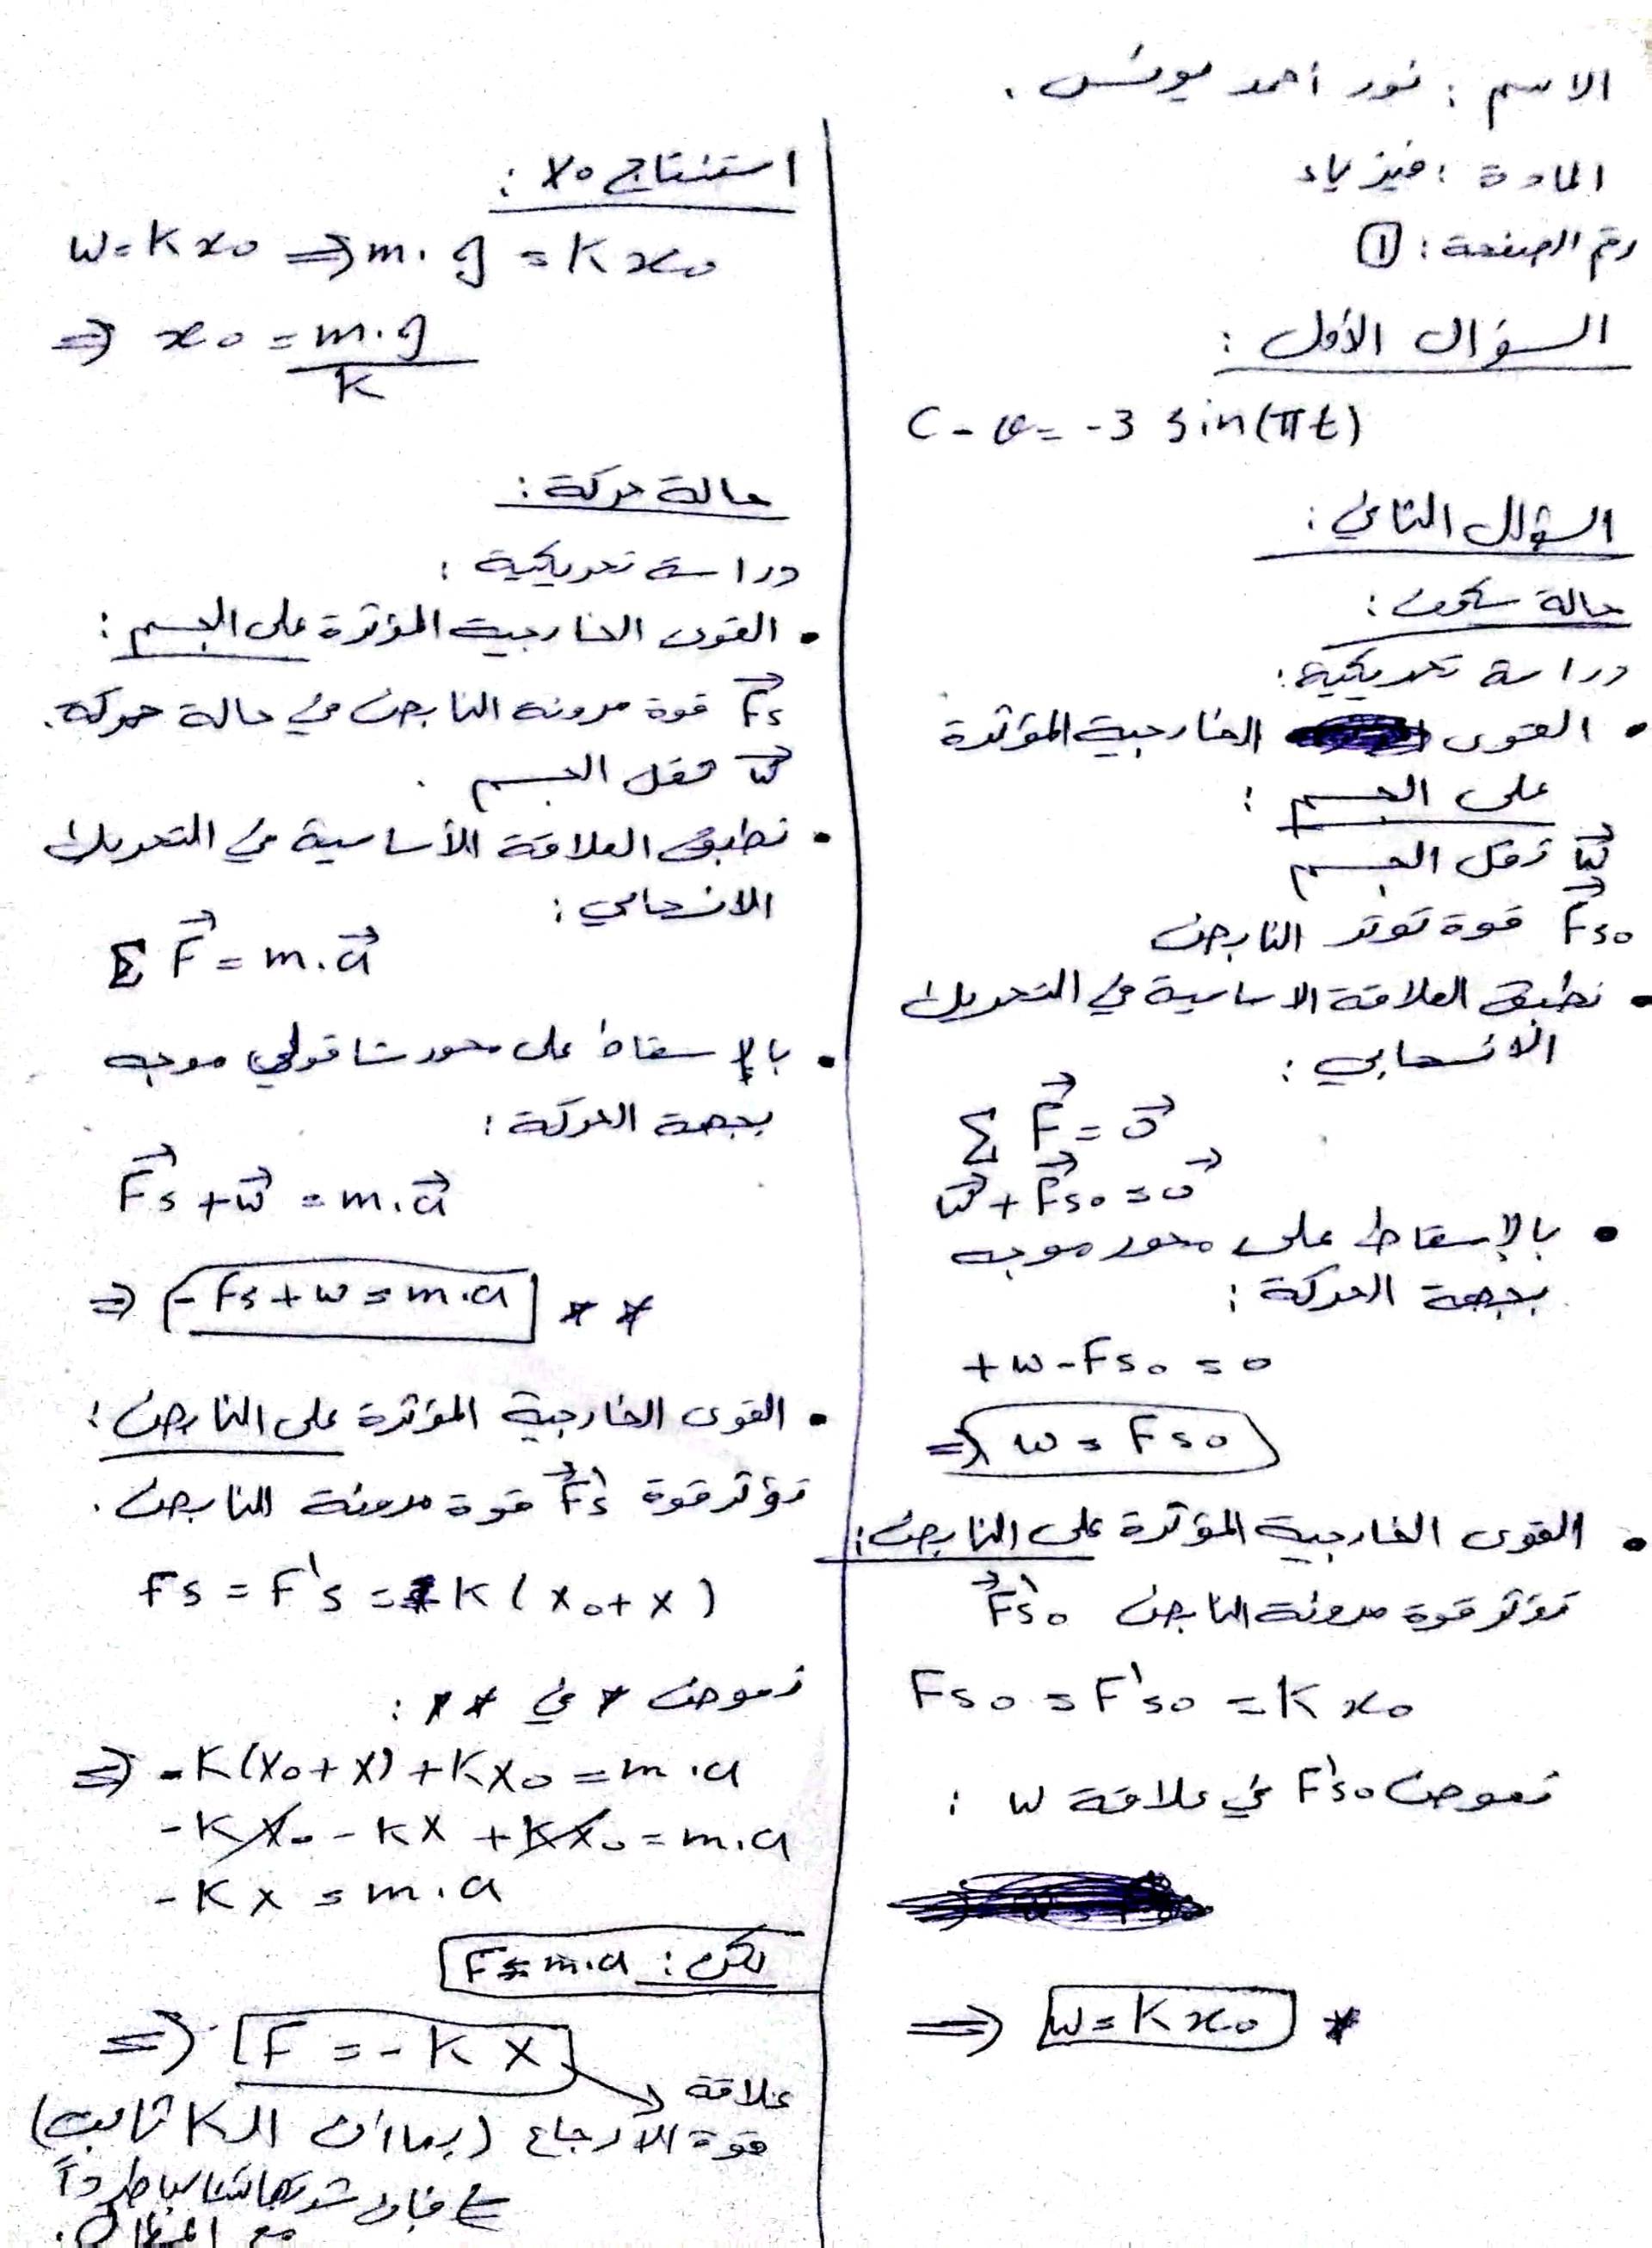 الاسم : نور أحمد يونس .
المادة : فيزياء
رقم الصفحة : 1
السؤال الأول :
C - v = -3 sin(πt)
السؤال الثاني :
حالة سكون :
دراسة تحريكية :
• القوى الخارجية المؤثرة
على الجسم :
W⃗ ثقل الجسم
F⃗s₀ قوة توتر النابض
• نطبق العلاقة الاساسية في التحريك
الانسحابي :
Σ F⃗ = 0⃗
W⃗ + F⃗s₀ = 0⃗
• بالإسقاط على محور موجه
بجهة الحركة :
+w - Fs₀ = 0
⇒ w = Fs₀
• القوى الخارجية المؤثرة على النابض :
تؤثر قوة مرونة النابض F⃗'s₀
Fs₀ = F's₀ = K x₀
نعوض F's₀ في علاقة w :
⇒ w = K x₀ *
استنتاج x₀ :
w = K x₀ ⇒ m . g = K x₀
⇒ x₀ = m.g / K
حالة حركة :
دراسة تحريكية :
• القوى الخارجية المؤثرة على الجسم :
F⃗s قوة مرونة النابض في حالة حركة .
W⃗ ثقل الجسم .
• نطبق العلاقة الأساسية في التحريك
الانسحابي :
Σ F⃗ = m . a⃗
• بالإسقاط على محور شاقولي موجه
بجهة الحركة :
F⃗s + w⃗ = m . a⃗
⇒ -Fs + w = m . a **
• القوى الخارجية المؤثرة على النابض :
تؤثر قوة F⃗'s قوة مرونة النابض .
Fs = F's = K (x₀ + x)
نعوض * في ** :
⇒ -K(x₀ + x) + K x₀ = m . a
-K x₀ - K x + K x₀ = m . a
-K x = m . a
لكن : F = m . a
⇒ F = - K x
علاقة
قوة الارجاع (بما أن الـ K ثابت)
فإن شدتها تتناسب طرداً
مع المطال .